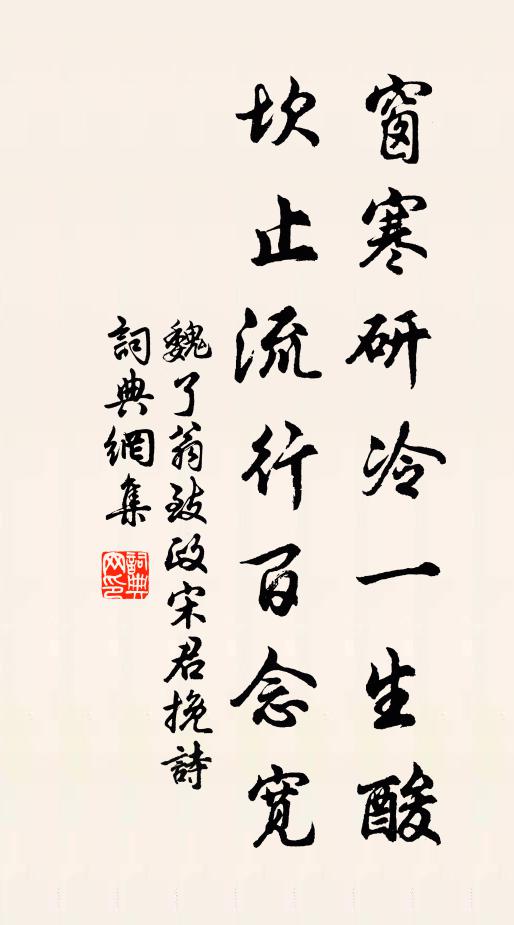 窗寒研冷一生酸
坎止流行百念寬
魏了翁致政宋君挽詩
詞典網集
詞典網印